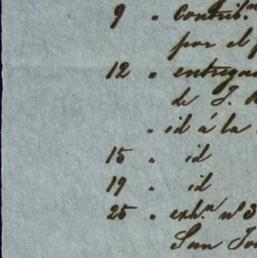 9 " contrib.on
por el p
12 " entregad
de J.
" id á la
15 " id
19 " id
25 " exh.n nº 3
San Jo